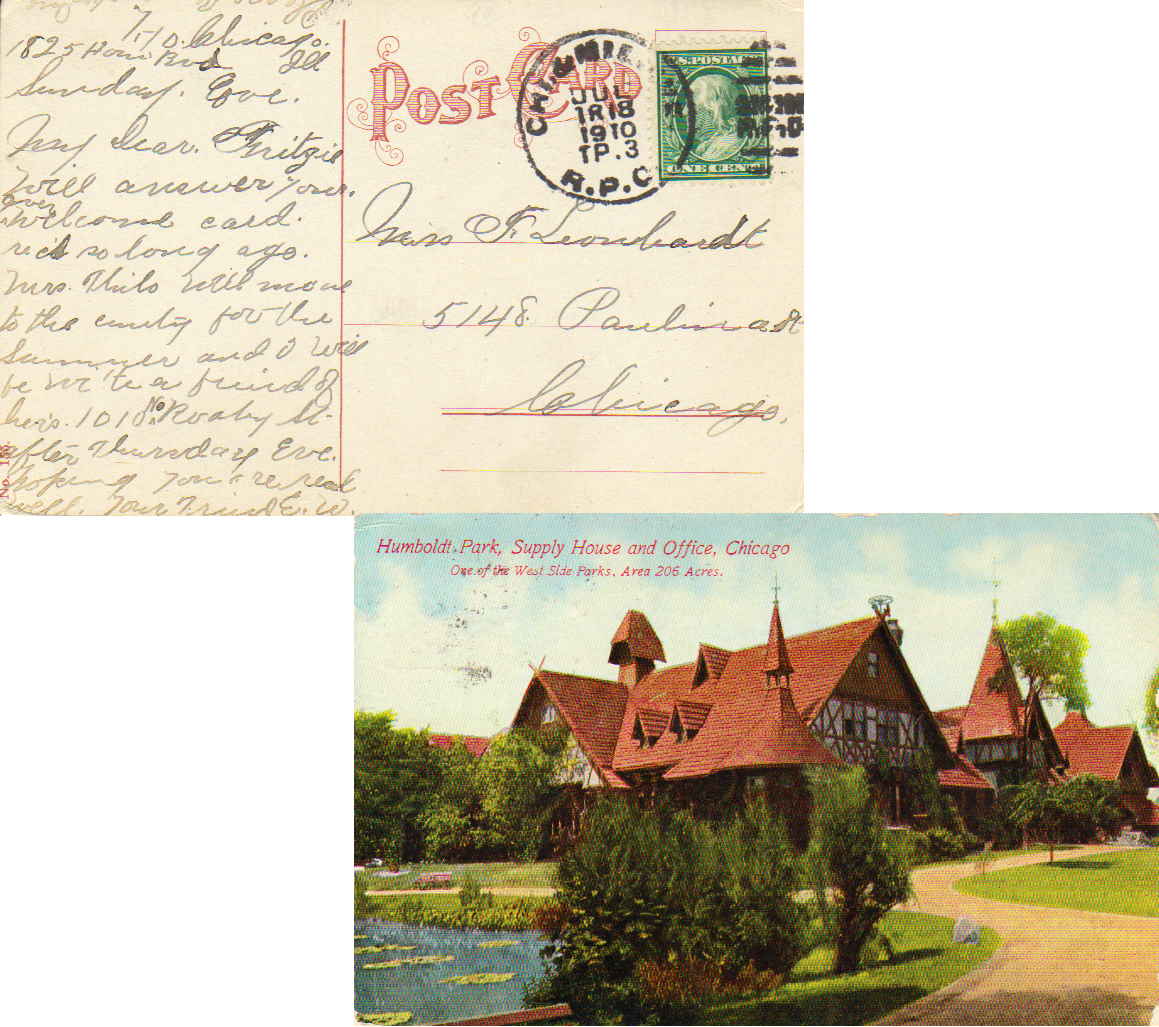 7.10. Chicago.
1825 Hum Bvd Ill
Sunday. Eve.
My Dear. Fritzie
Will answer your.
ever
Welcome card.
rec'd so long ago.
Mrs. Thilo will move
to the cuntry for the
Summer and I will
be with a friend of
hers. 1018 No. Roaby St.
after Thursday Eve.
Hoping you're real
well. Your Friend E. W.
No. 158.
POST CARD
CHI. & MIL.
JUL
TR 18
1910
TP. 3
R.P.O
U.S. POSTAGE
ONE CENT
R.P.O
Miss F. Leonhardt
5148 Paulina St
Chicago.
Humboldt Park, Supply House and Office, Chicago
One of the West Side Parks, Area 206 Acres.